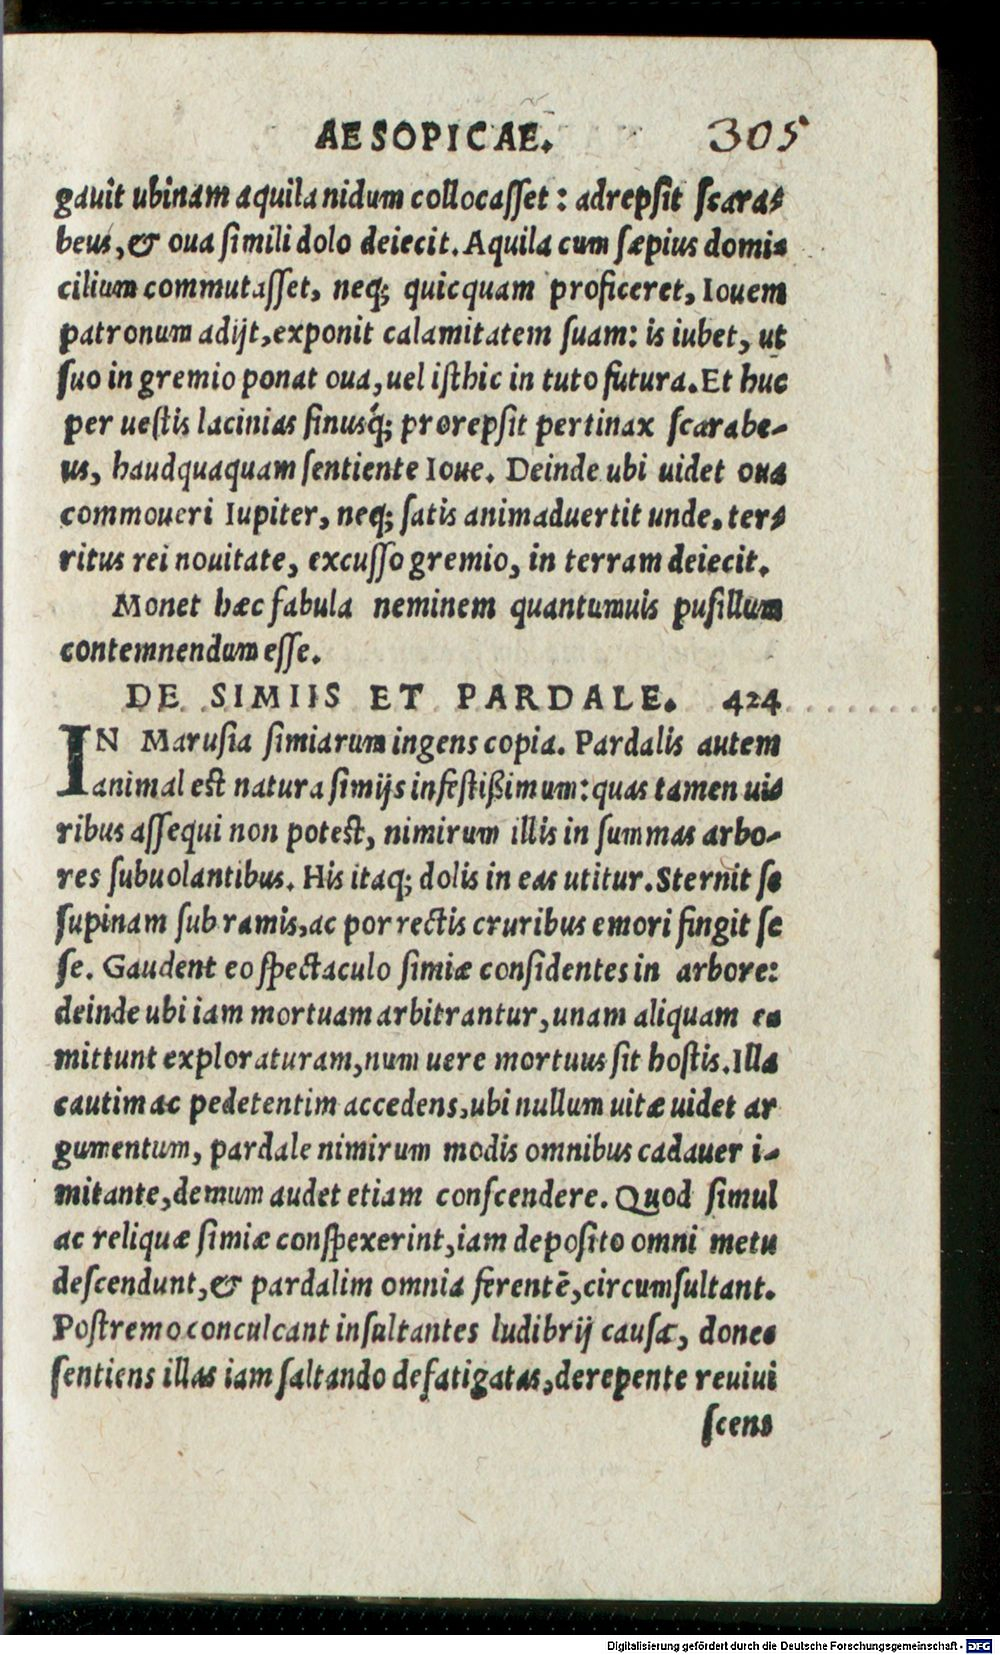 AESOPICAE. 305
gauit ubinam aquila nidum collocaſſet : adrepſit ſcara-
beus, & oua ſimili dolo deiecit. Aquila cum ſæpius domi-
cilium commutaſſet, neq; quicquam proficeret, Iouem
patronum adijt, exponit calamitatem ſuam: is iubet, ut
ſuo in gremio ponat oua, uel iſthic in tuto futura. Et huc
per ueſtis lacinias ſinusq́; prorepſit pertinax ſcarabe-
us, haudquaquam ſentiente Ioue. Deinde ubi uidet oua
commoueri Iupiter, neq; ſatis animaduertit unde, ter-
ritus rei nouitate, excuſſo gremio, in terram deiecit.
Monet hæc fabula neminem quantumuis puſillum
contemnendum eſſe.
DE SIMIIS ET PARDALE. 424
IN Maruſia ſimiarum ingens copia. Pardalis autem
animal eſt natura ſimijs infeſtißimum: quas tamen ui-
ribus aſſequi non poteſt, nimirum illis in ſummas arbo-
res ſubuolantibus. His itaq; dolis in eas utitur. Sternit ſe
ſupinam ſub ramis, ac porrectis cruribus emori fingit ſe
ſe. Gaudent eo ſpectaculo ſimiæ conſidentes in arbore:
deinde ubi iam mortuam arbitrantur, unam aliquam e-
mittunt exploraturam, num uere mortuus ſit hoſtis. Illa
cautim ac pedetentim accedens, ubi nullum uitæ uidet ar
gumentum, pardale nimirum modis omnibus cadauer i-
mitante, demum audet etiam conſcendere. Quod ſimul
ac reliquæ ſimiæ conſpexerint, iam depoſito omni metu
deſcendunt, & pardalim omnia ferentē, circumſultant.
Poſtremo conculcant inſultantes ludibrij cauſæ, donec
ſentiens illas iam ſaltando defatigatas, derepente reuiui
ſcens
Digitalisierung gefördert durch die Deutsche Forschungsgemeinschaft - DFG